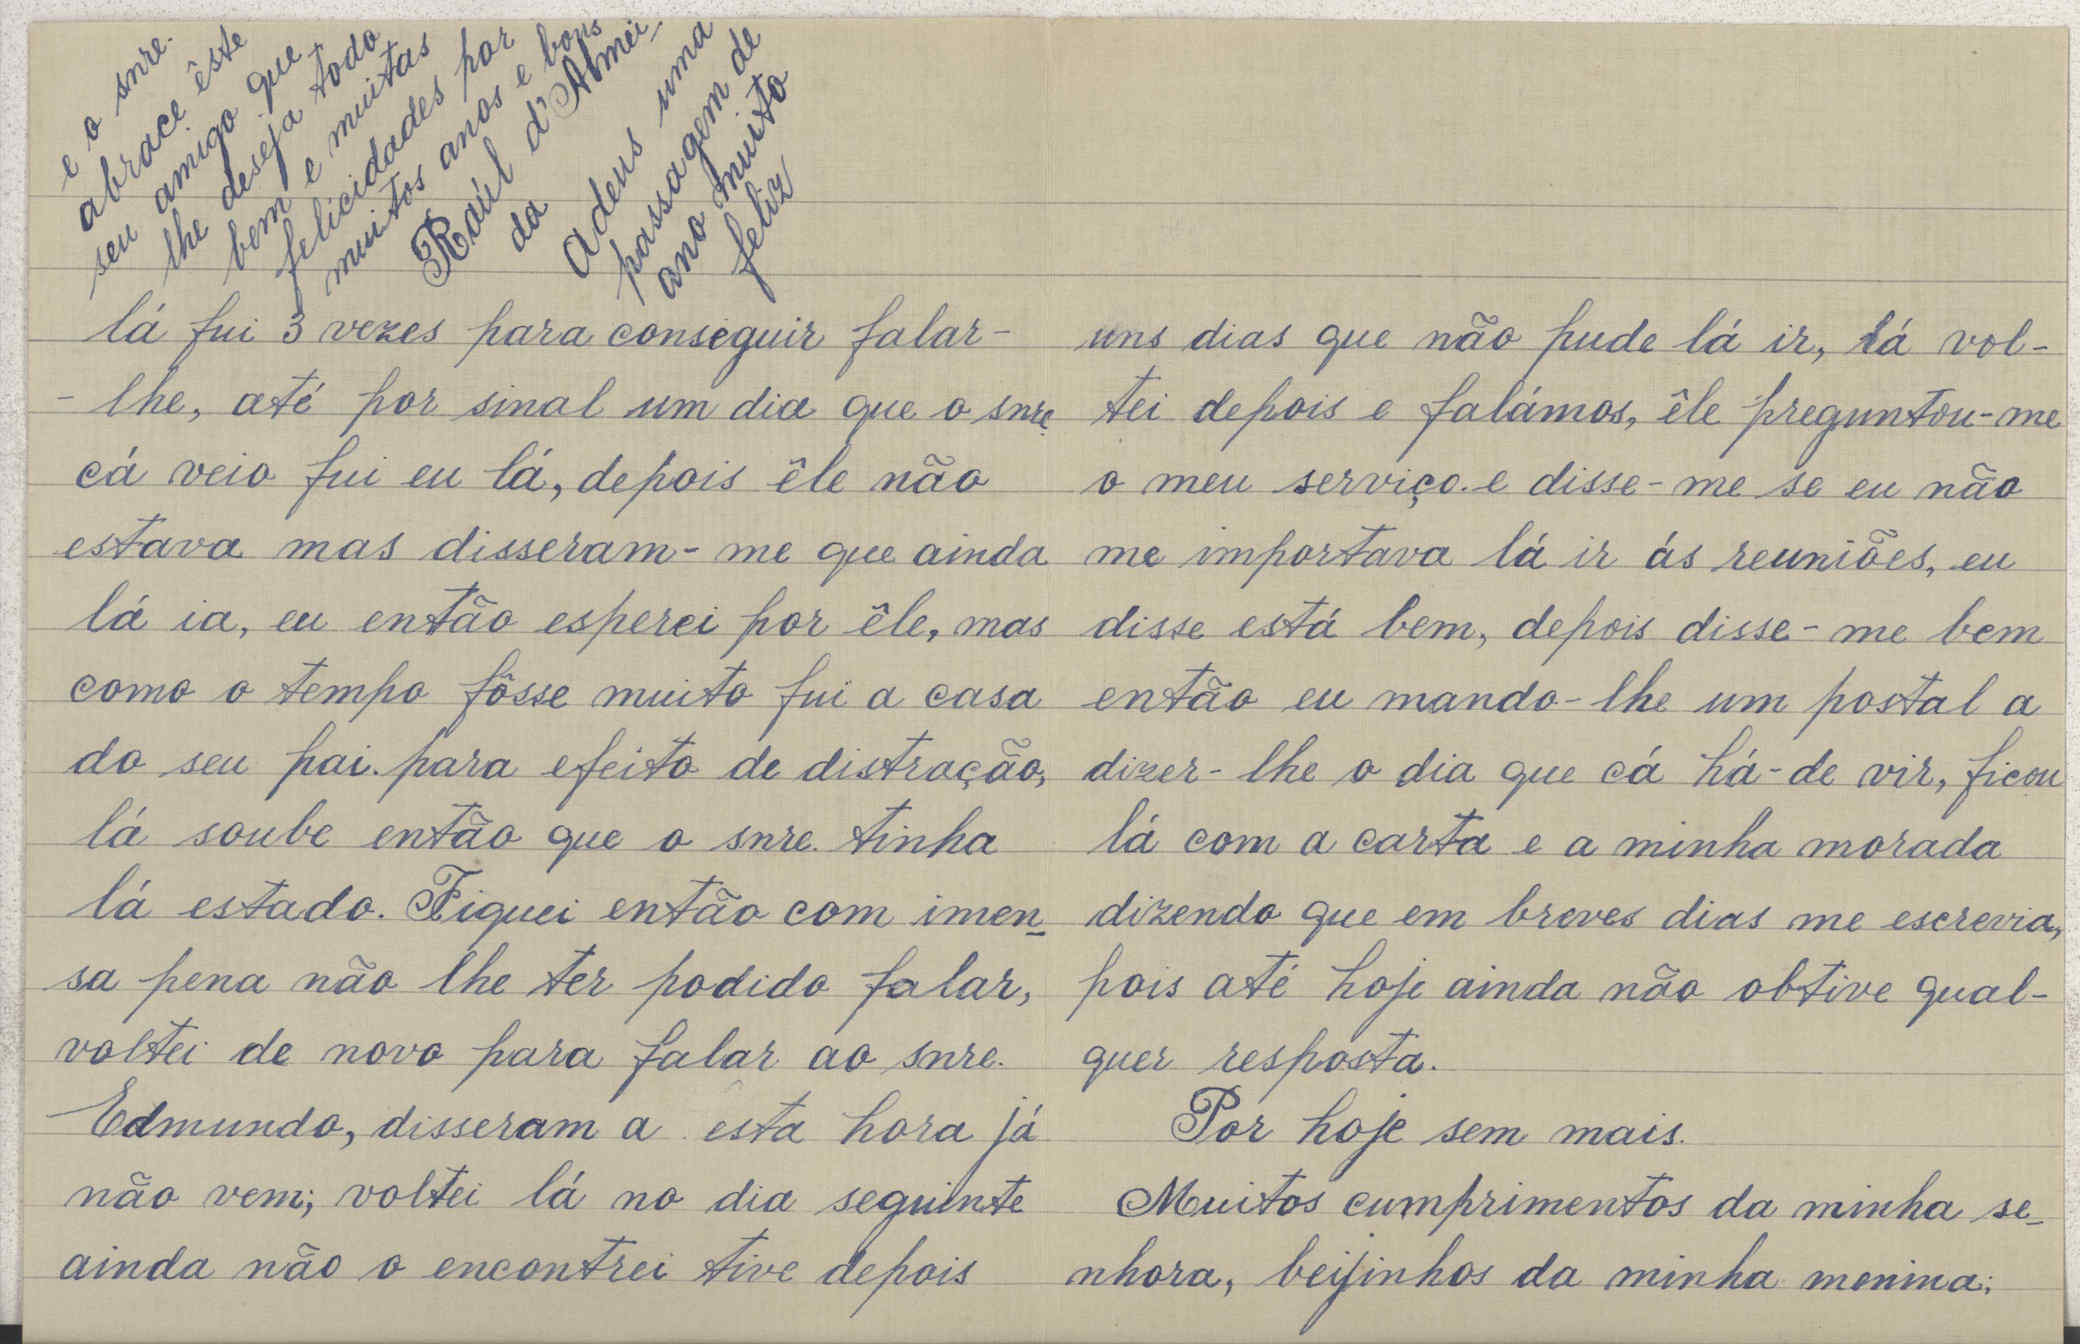 lá fui 3 vezes para conseguir falar-
-lhe, até por sinal um dia que o snre.
cá veio fui eu lá, depois êle não
estava mas disseram-me que ainda
lá ia, eu então esperei por êle, mas
como o tempo fôsse muito fui a casa
do seu pai. para efeito de distração,
lá soube então que o snre. tinha
lá estado. Fiquei então com imen-
sa pena não lhe ter podido falar,
voltei de novo para falar ao snre.
Edmundo, disseram a esta hora já
não vem; voltei lá no dia seguinte
ainda não o encontrei tive depois
uns dias que não pude lá ir, lá vol-
tei depois e falámos, êle preguntou-me
o meu serviço. e disse-me se eu não
me importava lá ir ás reuniões, eu
disse está bem, depois disse-me bem
então eu mando-lhe um postal a
dizer-lhe o dia que cá há-de vir, ficou
lá com a carta e a minha morada
dizendo que em breves dias me escrevia,
pois até hoje ainda não obtive qual-
quer resposta.
Por hoje sem mais.
Muitos cumprimentos da minha se-
nhora, beijinhos da minha menina;
e o snre.
abrace êste
seu amigo que
lhe deseja todo
bem e muitas
felicidades por
muitos anos e bons
Raúl d'Almei-
da
Adeus uma
passagem de
ano muito
feliz